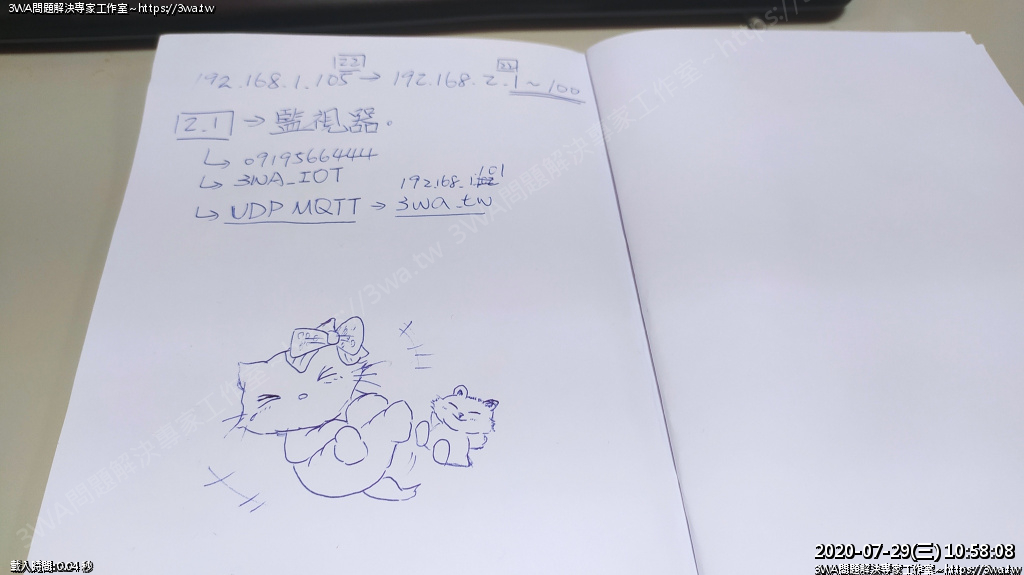 3WA問題解決專家工作室~https://3wa.tw
22
22
192.168.1.105 → 192.168.2.1 ~ 100
2.1 → 監視器.
↳ 0919566444
↳ 3WA_IOT
192.168.1.101
↳ UDP MQTT → 3wa.tw
3WA問題解決專家工作室~https://3wa.tw
3WA問題解決專家工作室~https://3wa.tw
載入時間:0.04 秒
2020-07-29(三) 10:58:08
3WA問題解決專家工作室~https://3wa.tw